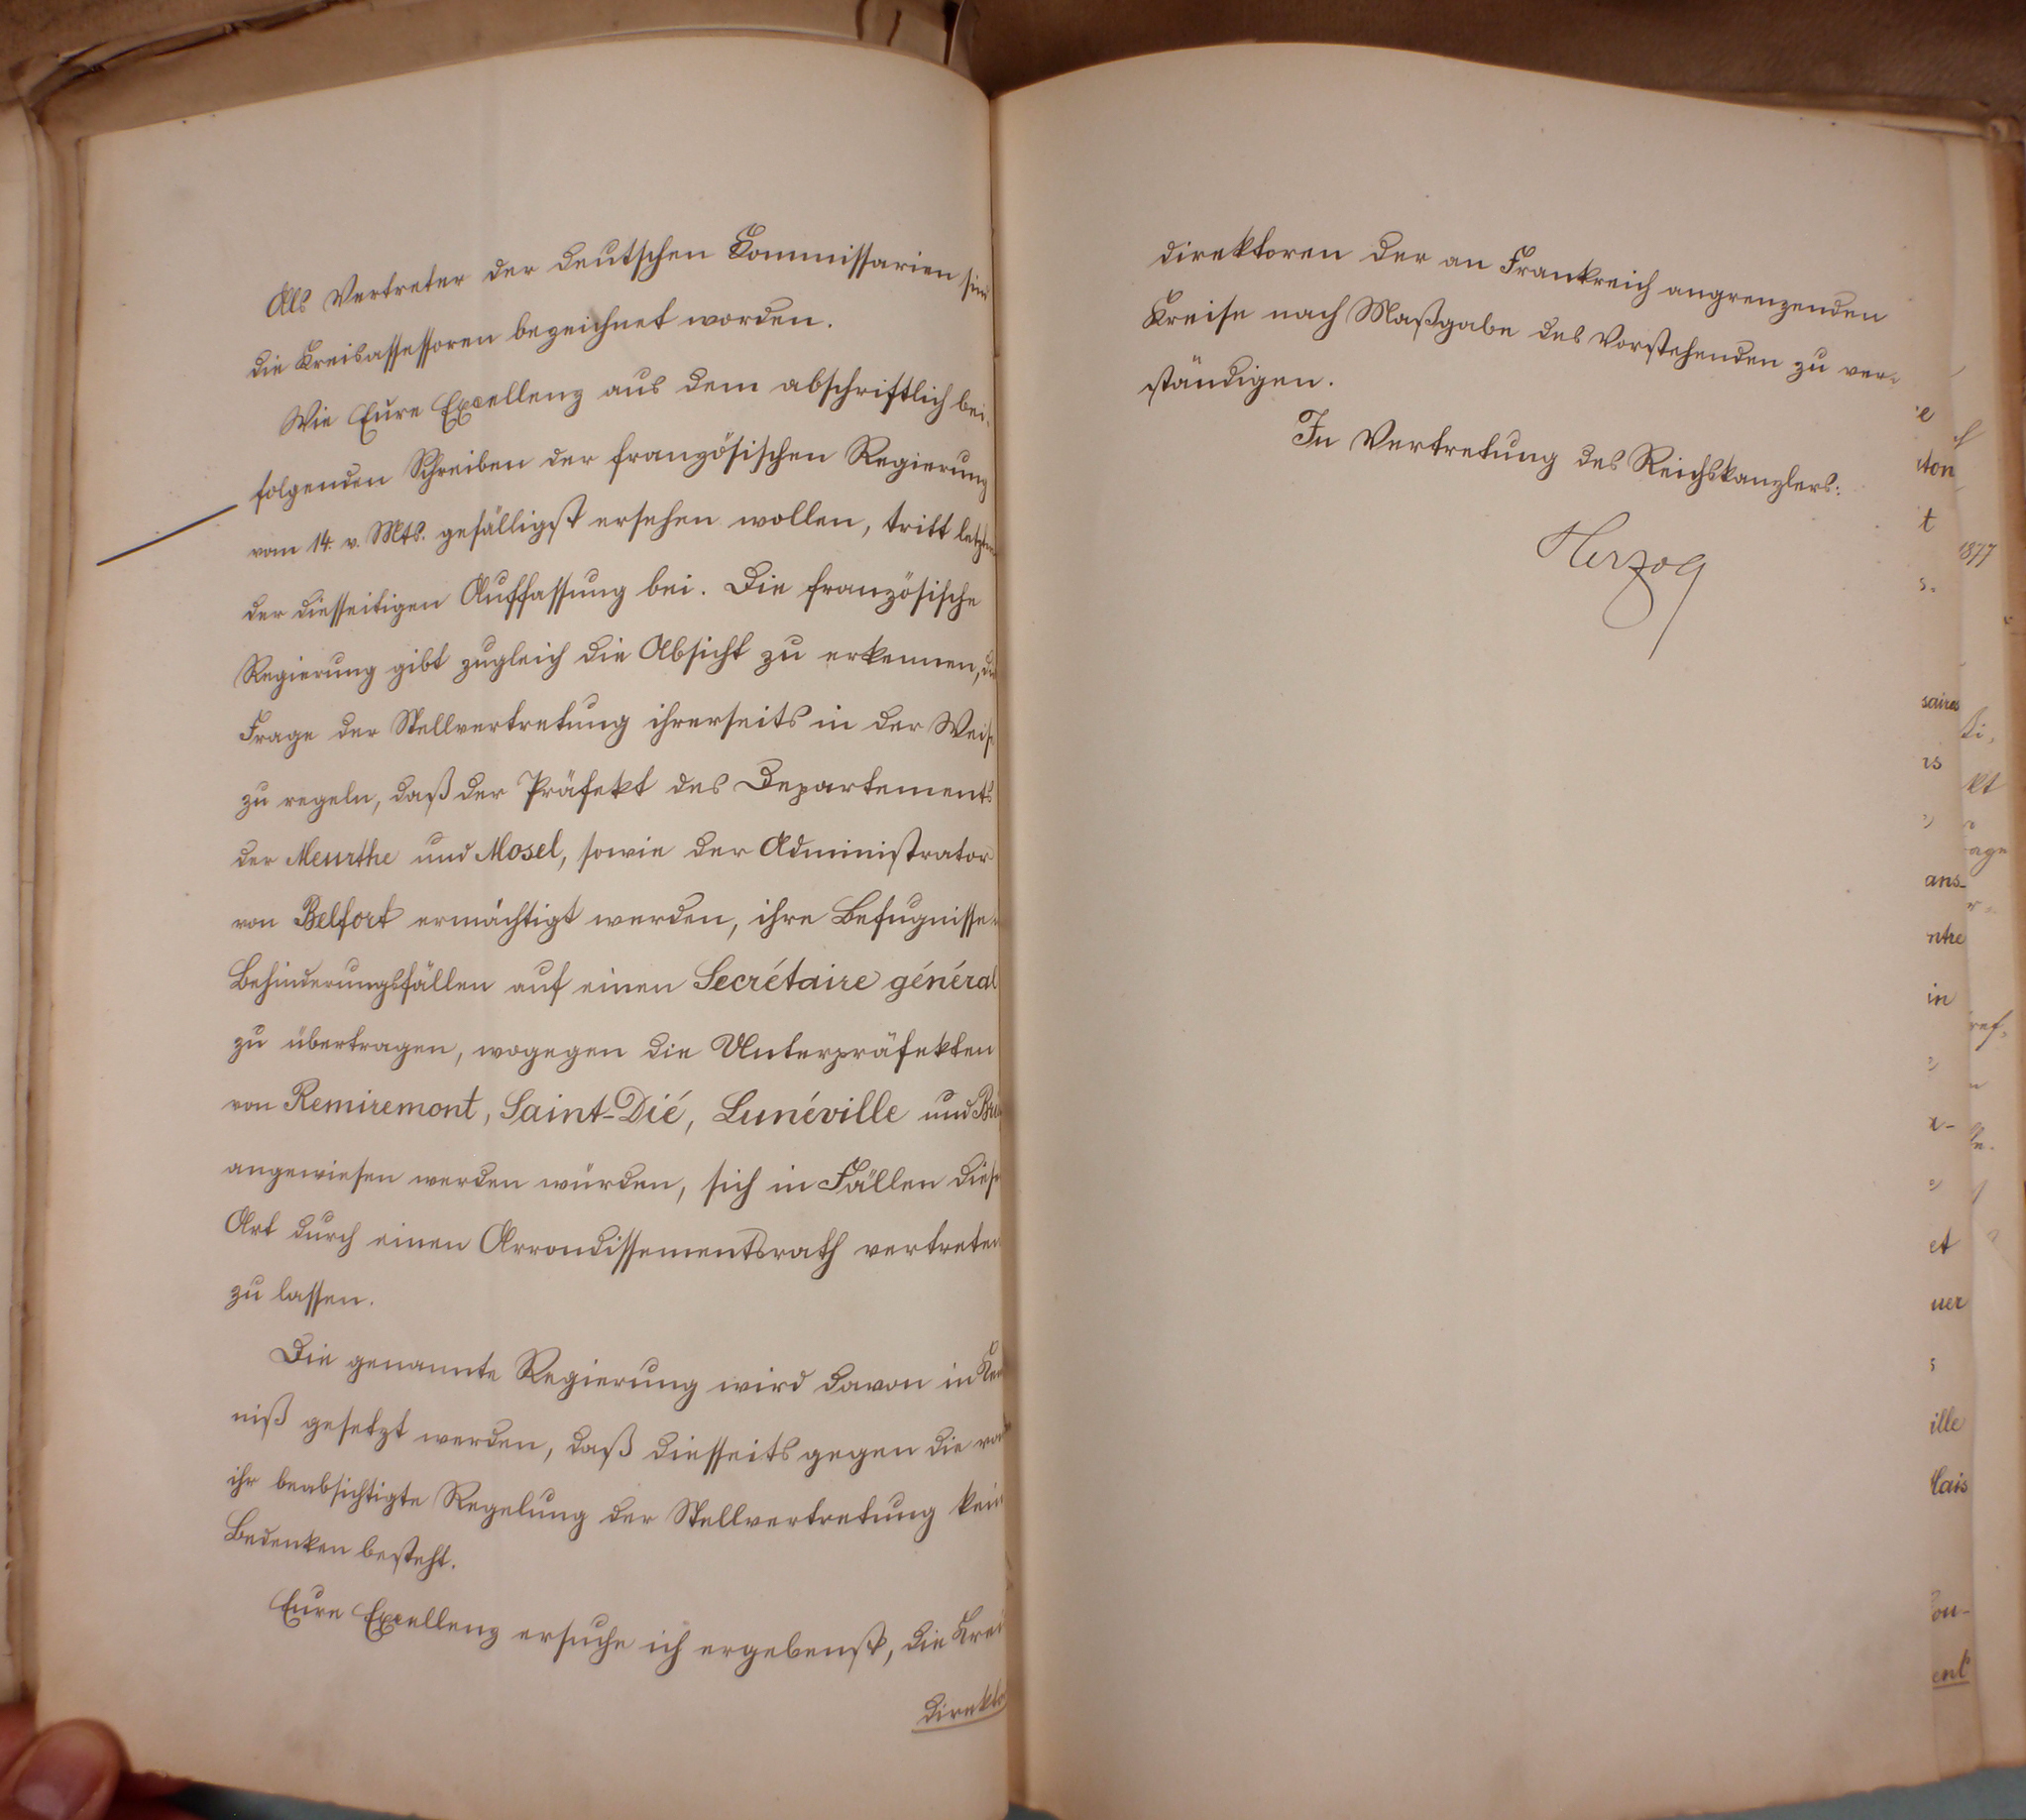 Als Vertreter der deutschen Kommissarien sind
die Kreisassessoren bezeichnet worden.
Wie Eure Excellenz aus dem abschriftlich bei-
folgenden Schreiben der französischen Regierung
vom 14. v. Mts. gefälligst ersehen wollen, tritt letztere
der diesseitigen Auffassung bei. Die französische
Regierung gibt zugleich die Absicht zu erkennen, die
Frage der Stellvertretung ihrerseits in der Weise
zu regeln, daß der Präfekt des Departements
der Meurthe und Mosel, sowie der Administrator
von Belfort ermächtigt werden, ihre Befugnisse
Behinderungsfällen auf einen Secrétaire général
zu übertragen, wogegen die Unterpräfekten
von Remiremont, Saint-Dié, Lunéville und
angewiesen werden würden, sich in Fällen dieser
Art durch einen Arrondissementsrath vertreten
zu lassen.
Die genannte Regierung wird davon in Kennt
niß gesetzt werden, daß diesseits gegen die von
ihr beabsichtigte Regelung der Stellvertretung kein
Bedenken besteht.
Eure Excellenz ersuche ich ergebenst, die Kreis
direkto
direktoren der an Frankreich angrenzenden
Kreise nach Maßgabe des Vorstehenden zu ver-
ständigen.
In Vertretung des Reichskanzlers:
Herzog
1877